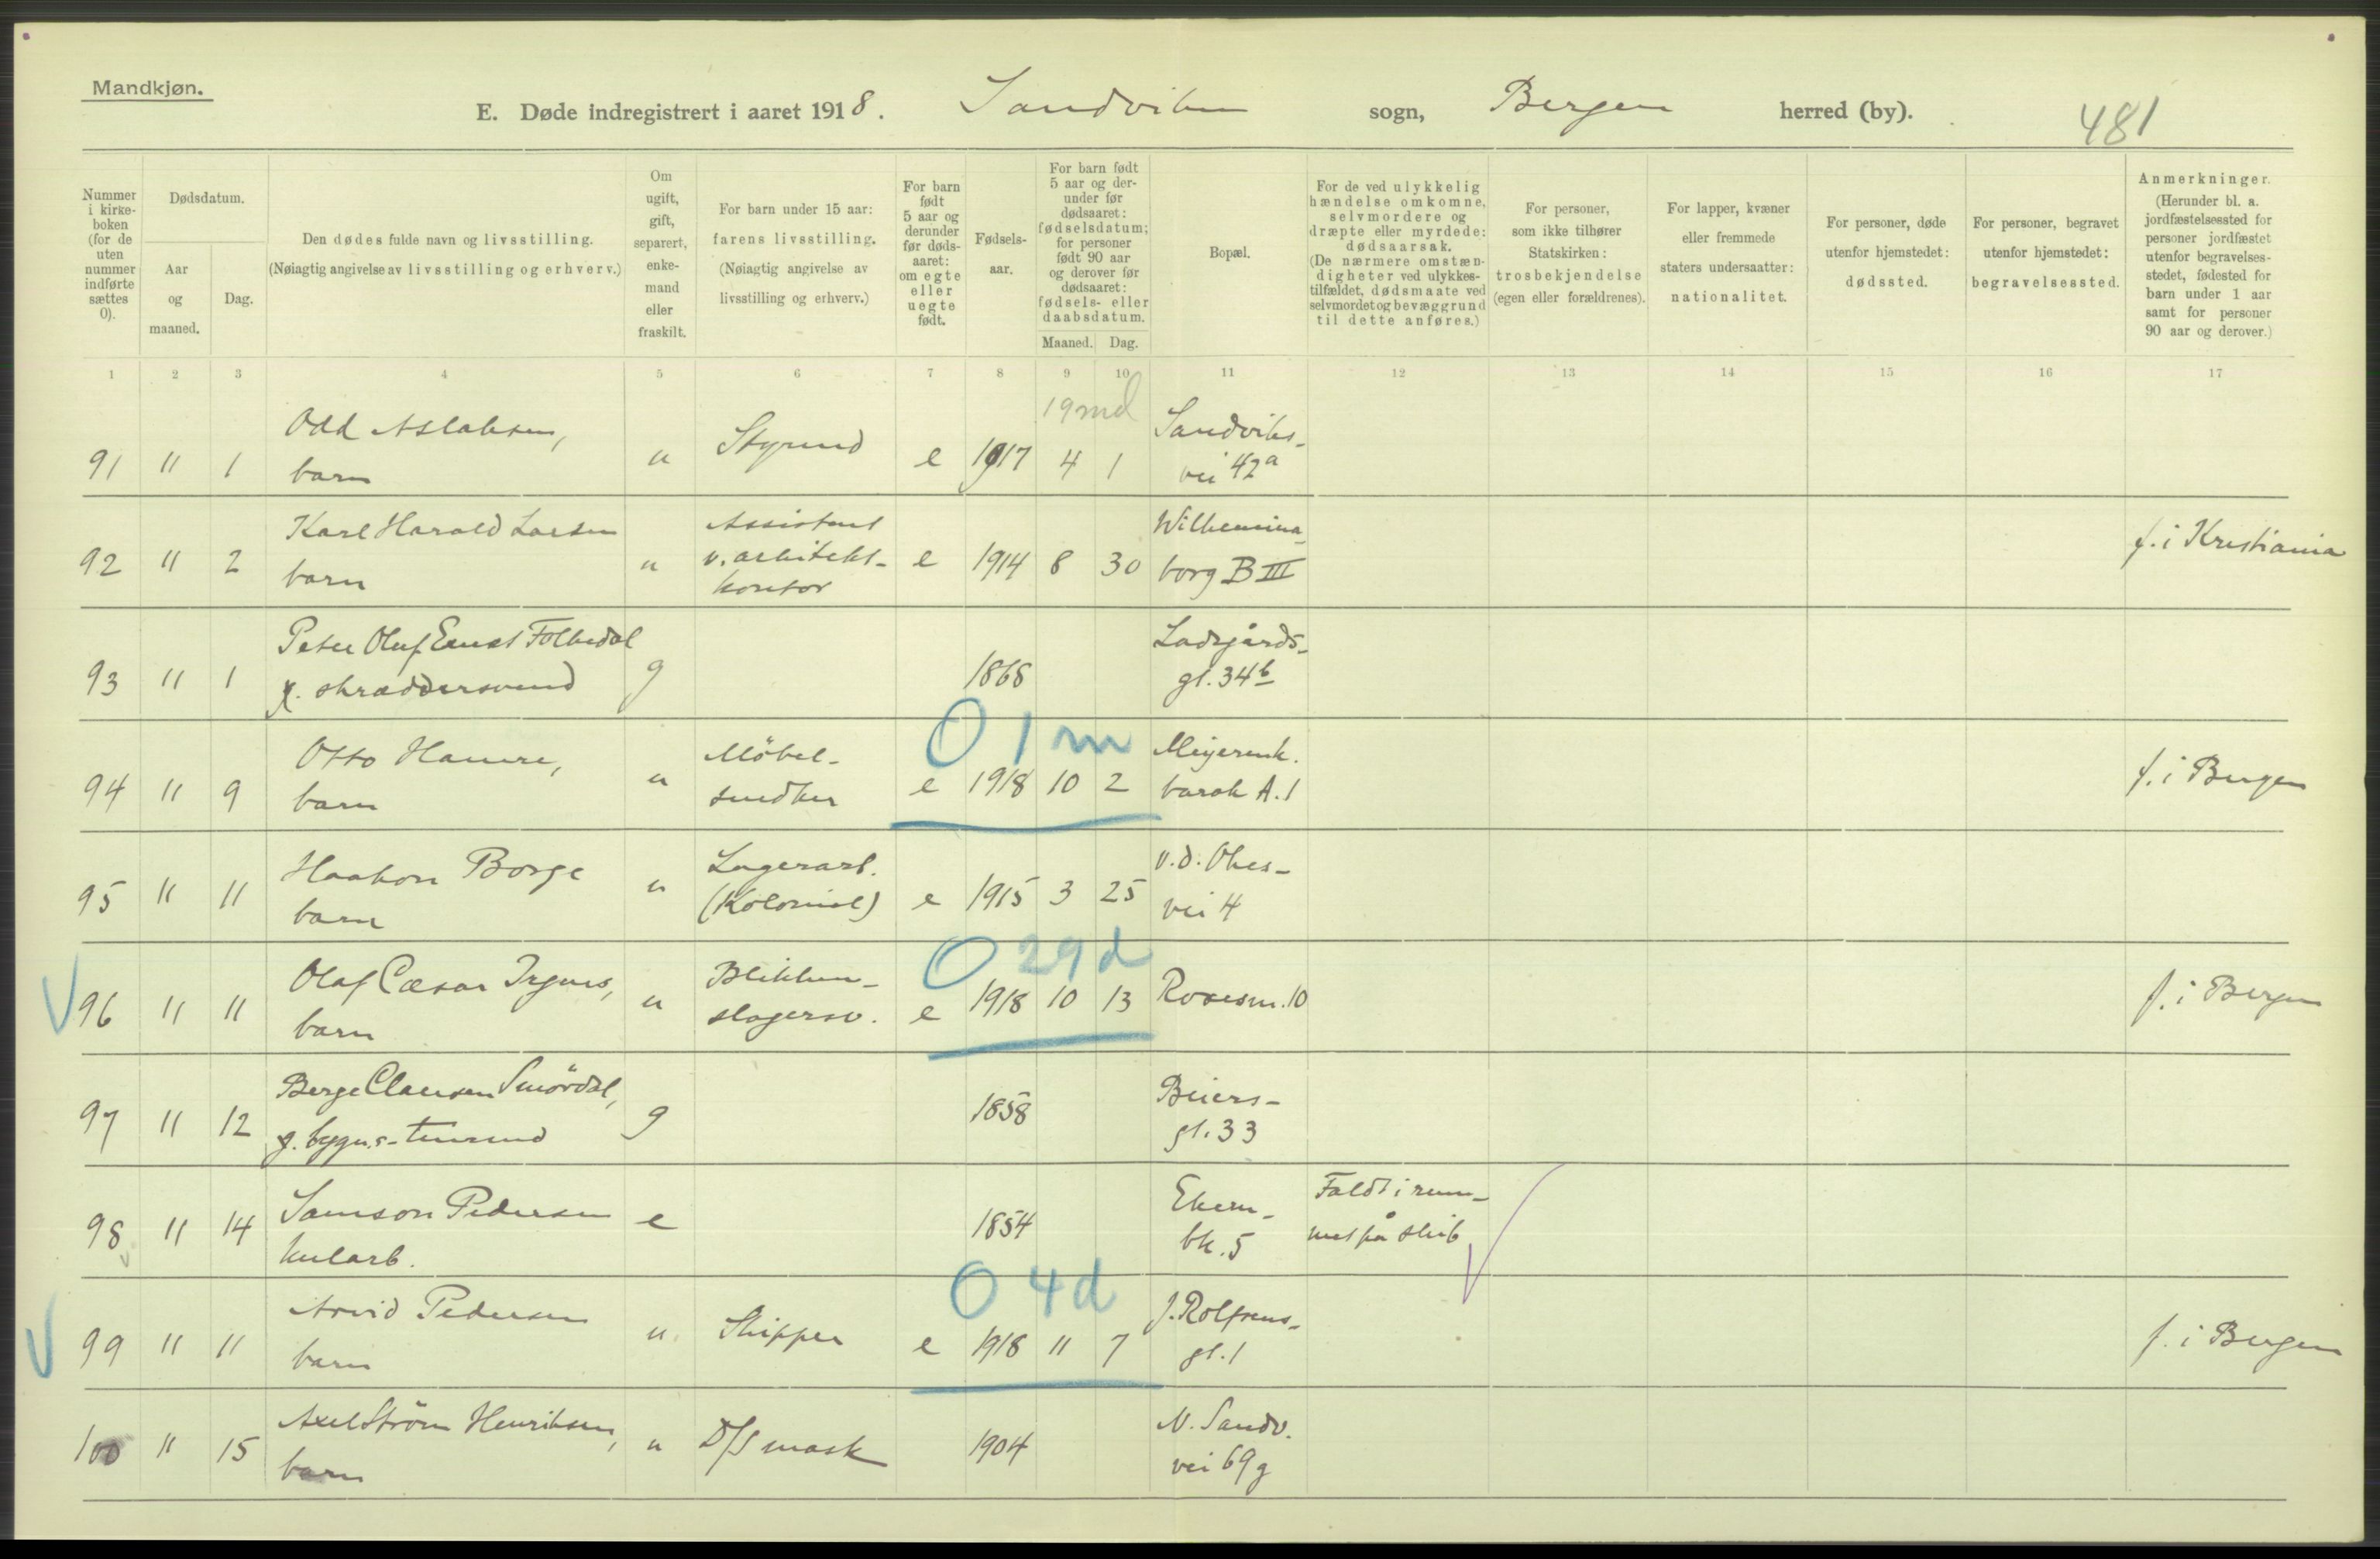 Mandkjøn.
E. Døde indregistrert i aaret 1918. Sandviken sogn, Bergen herred (by). 481
Nummer i kirke-boken (for de uten nummer indførte sættes 0).
Dødsdatum.
Aar og maaned.
Dag.
Den dødes fulde navn og livsstilling.
(Nøiagtig angivelse av livsstilling og erhverv.)
Om ugift, gift, separert, enke-mand eller fraskilt.
For barn under 15 aar: farens livsstilling.
(Nøiagtig angivelse av livsstilling og erhverv.)
For barn født 5 aar og derunder før døds-aaret: om egte eller uegte født.
Fødsels-aar.
For barn født 5 aar og der-under før dødsaaret: fødselsdatum; for personer født 90 aar og derover før dødsaaret: fødsels- eller daabsdatum.
Maaned. Dag.
Bopæl.
For de ved ulykkelig hændelse omkomne, selvmordere og dræpte eller myrdede: dødsaarsak.
(De nærmere omstæn-digheter ved ulykkes-tilfældet, dødsmaate ved selvmordet og bevæggrund til dette anføres.)
For personer, som ikke tilhører Statskirken: trosbekjendelse (egen eller forældrenes).
For lapper, kvæner eller fremmede staters undersaatter: nationalitet.
For personer, døde utenfor hjemstedet: dødssted.
For personer, begravet utenfor hjemstedet: begravelsessted.
Anmerkninger.
(Herunder bl. a. jordfæstelsessted for personer jordfæstet utenfor begravelses-stedet, fødested for barn under 1 aar samt for personer 90 aar og derover.)
1 2 3 4 5 6 7 8 9 10 11 12 13 14 15 16 17
19 md
Odd Aslaksen, Sandviks-
91 " 1 barn u Styrmd e 1917 4 1 vei 42a
Karl Harald Larsen Assistent Wilhemina-
92 " 2 barn u v. arkitekt- e 1914 8 30 borg B III f. i Kristiania
kontor
Peter Oluf Ernst Folkedal Ladegårds-
93 " 1 g. skræddersvend g 1868 gt. 34b
0 1 m
Otto Hamre, Möbel- Meyermk.
94 " 9 barn u snedker e 1918 10 2 barak A. 1 f. i Bergen
Haakon Borge Lagerarb. v. d. Ohes-
95 " 11 barn u (Kolonial) e 1915 3 25 vei 4
0 29 d
Olaf Cæsar Irgens, Blikken-
96 " 11 barn u slagersv. e 1918 10 13 Rosesm. 10 f. i Bergen
Berge Clausen Smördal, Beiers-
97 " 12 g. bygn.s-tmrmd g 1858 gt. 33
Samson Pedersen Ekern- Faldt i rum-
98 " 14 kularb. e 1854 bk. 5 met på skib
0 4 d
Arvid Pedersen J. Rolfsens-
99 " 11 barn u Skipper e 1918 11 7 gt. 1 f. i Bergen
Axel Ström Henriksen, N. Sandv.
100 " 15 barn u D/S mask 1904 vei 69g